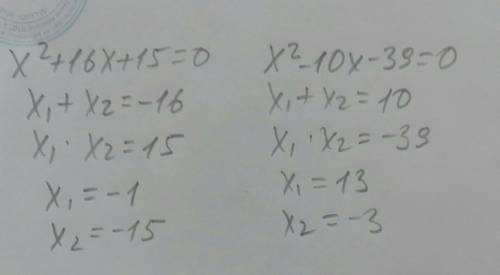 x²+16x+15=0
x₁+x₂=-16
x₁·x₂=15
x₁=-1
x₂=-15
x²-10x-39=0
x₁+x₂=10
x₁·x₂=-39
x₁=13
x₂=-3